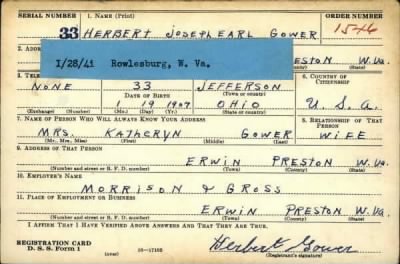 SERIAL NUMBER 1. NAME (Print) ORDER NUMBER
33 HERBERT JOSEPH EARL GOWER 1546
2. ADDR
1/28/41 Rowlesburg, W. Va. PRESTON W.VA.
3. TELE 6. COUNTRY OF CITIZENSHIP
NONE 33 JEFFERSON
DATE OF BIRTH (Town or county)
1 19 1907 OHIO U.S.A.
(Exchange) (Number) (Mo.) (Day) (Yr.) (State or country)
7. NAME OF PERSON WHO WILL ALWAYS KNOW YOUR ADDRESS 8. RELATIONSHIP OF THAT PERSON
MRS. KATHERYN GOWER WIFE
(Mr., Mrs., Miss) (First) (Middle) (Last)
9. ADDRESS OF THAT PERSON
ERWIN PRESTON W.VA.
(Number and street or R. F. D. number) (Town) (County) (State)
10. EMPLOYER'S NAME
MORRISON & GROSS
11. PLACE OF EMPLOYMENT OR BUSINESS
ERWIN PRESTON W.VA.
(Number and street or R. F. D. number) (Town) (County) (State)
I AFFIRM THAT I HAVE VERIFIED ABOVE ANSWERS AND THAT THEY ARE TRUE.
REGISTRATION CARD
D. S. S. Form 1 (over) 16—17105 Herbert Gower
(Registrant's signature)